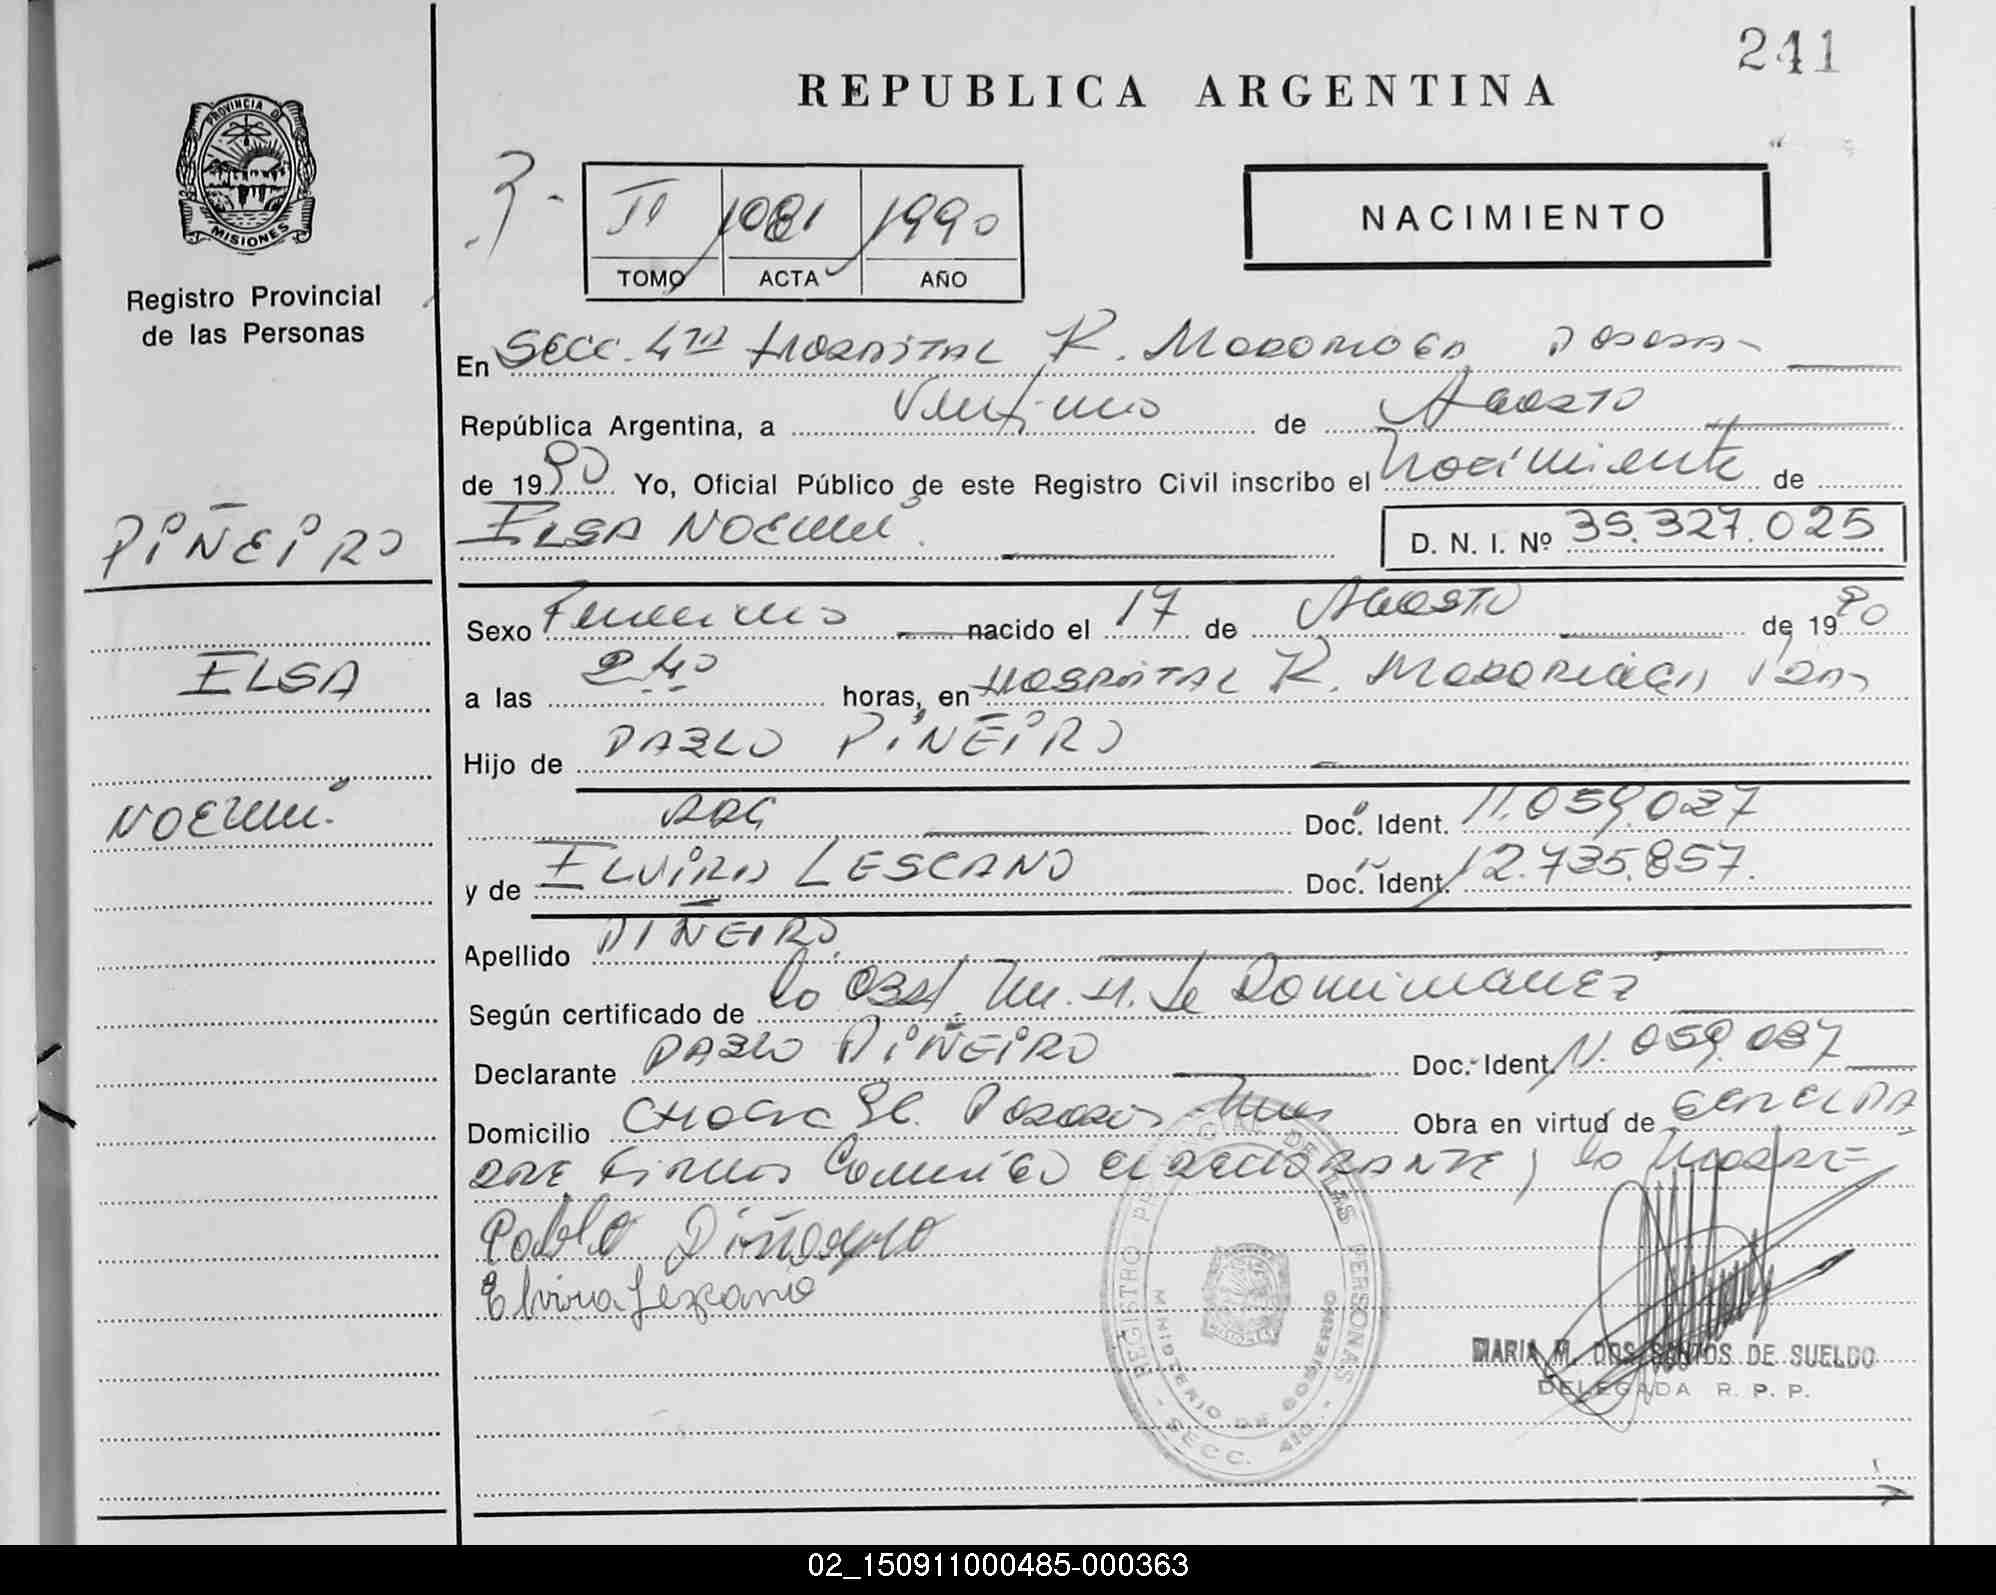 241
REPUBLICA ARGENTINA
PROVINCIA DE
MISIONES
Registro Provincial
de las Personas
3-
II 1081 1990
TOMO ACTA AÑO
NACIMIENTO
En Secc. 4ta Hospital R. Madariaga Posadas
República Argentina, a Veintiuno de Agosto
de 1990 Yo, Oficial Público de este Registro Civil inscribo el Nacimiento de
ELSA NOEMÍ
D. N. I. Nº 35.327.025
PIÑEIRO
ELSA
NOEMÍ
Sexo Femenino nacido el 17 de Agosto de 1990
a las 2.40 horas, en Hospital R. Madariaga
Hijo de PABLO PIÑEIRO
ARG Doc. Ident. 11.059.037
y de ELVIRA LESCANO Doc. Ident. 12.735.857.
Apellido PIÑEIRO
Según certificado de la Obst.
Declarante PABLO PIÑEIRO Doc. Ident. 11.059.037
Domicilio Chacra Posadas Mnes Obra en virtud de
Firma Conmigo el declarante, la Madre
Pablo
Elvira Lezcano
REGISTRO PROVINCIAL DE LAS PERSONAS
MINISTERIO DE GOBIERNO
- SECC. 4ta. -
MARIA M. DOS SANTOS DE SUELDO
DELEGADA R. P. P.
02_150911000485-000363